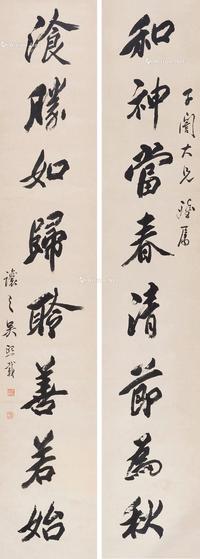 和神當春清節為秋
大兄屬
湌勝如歸聆善若始
讓之吳熙載